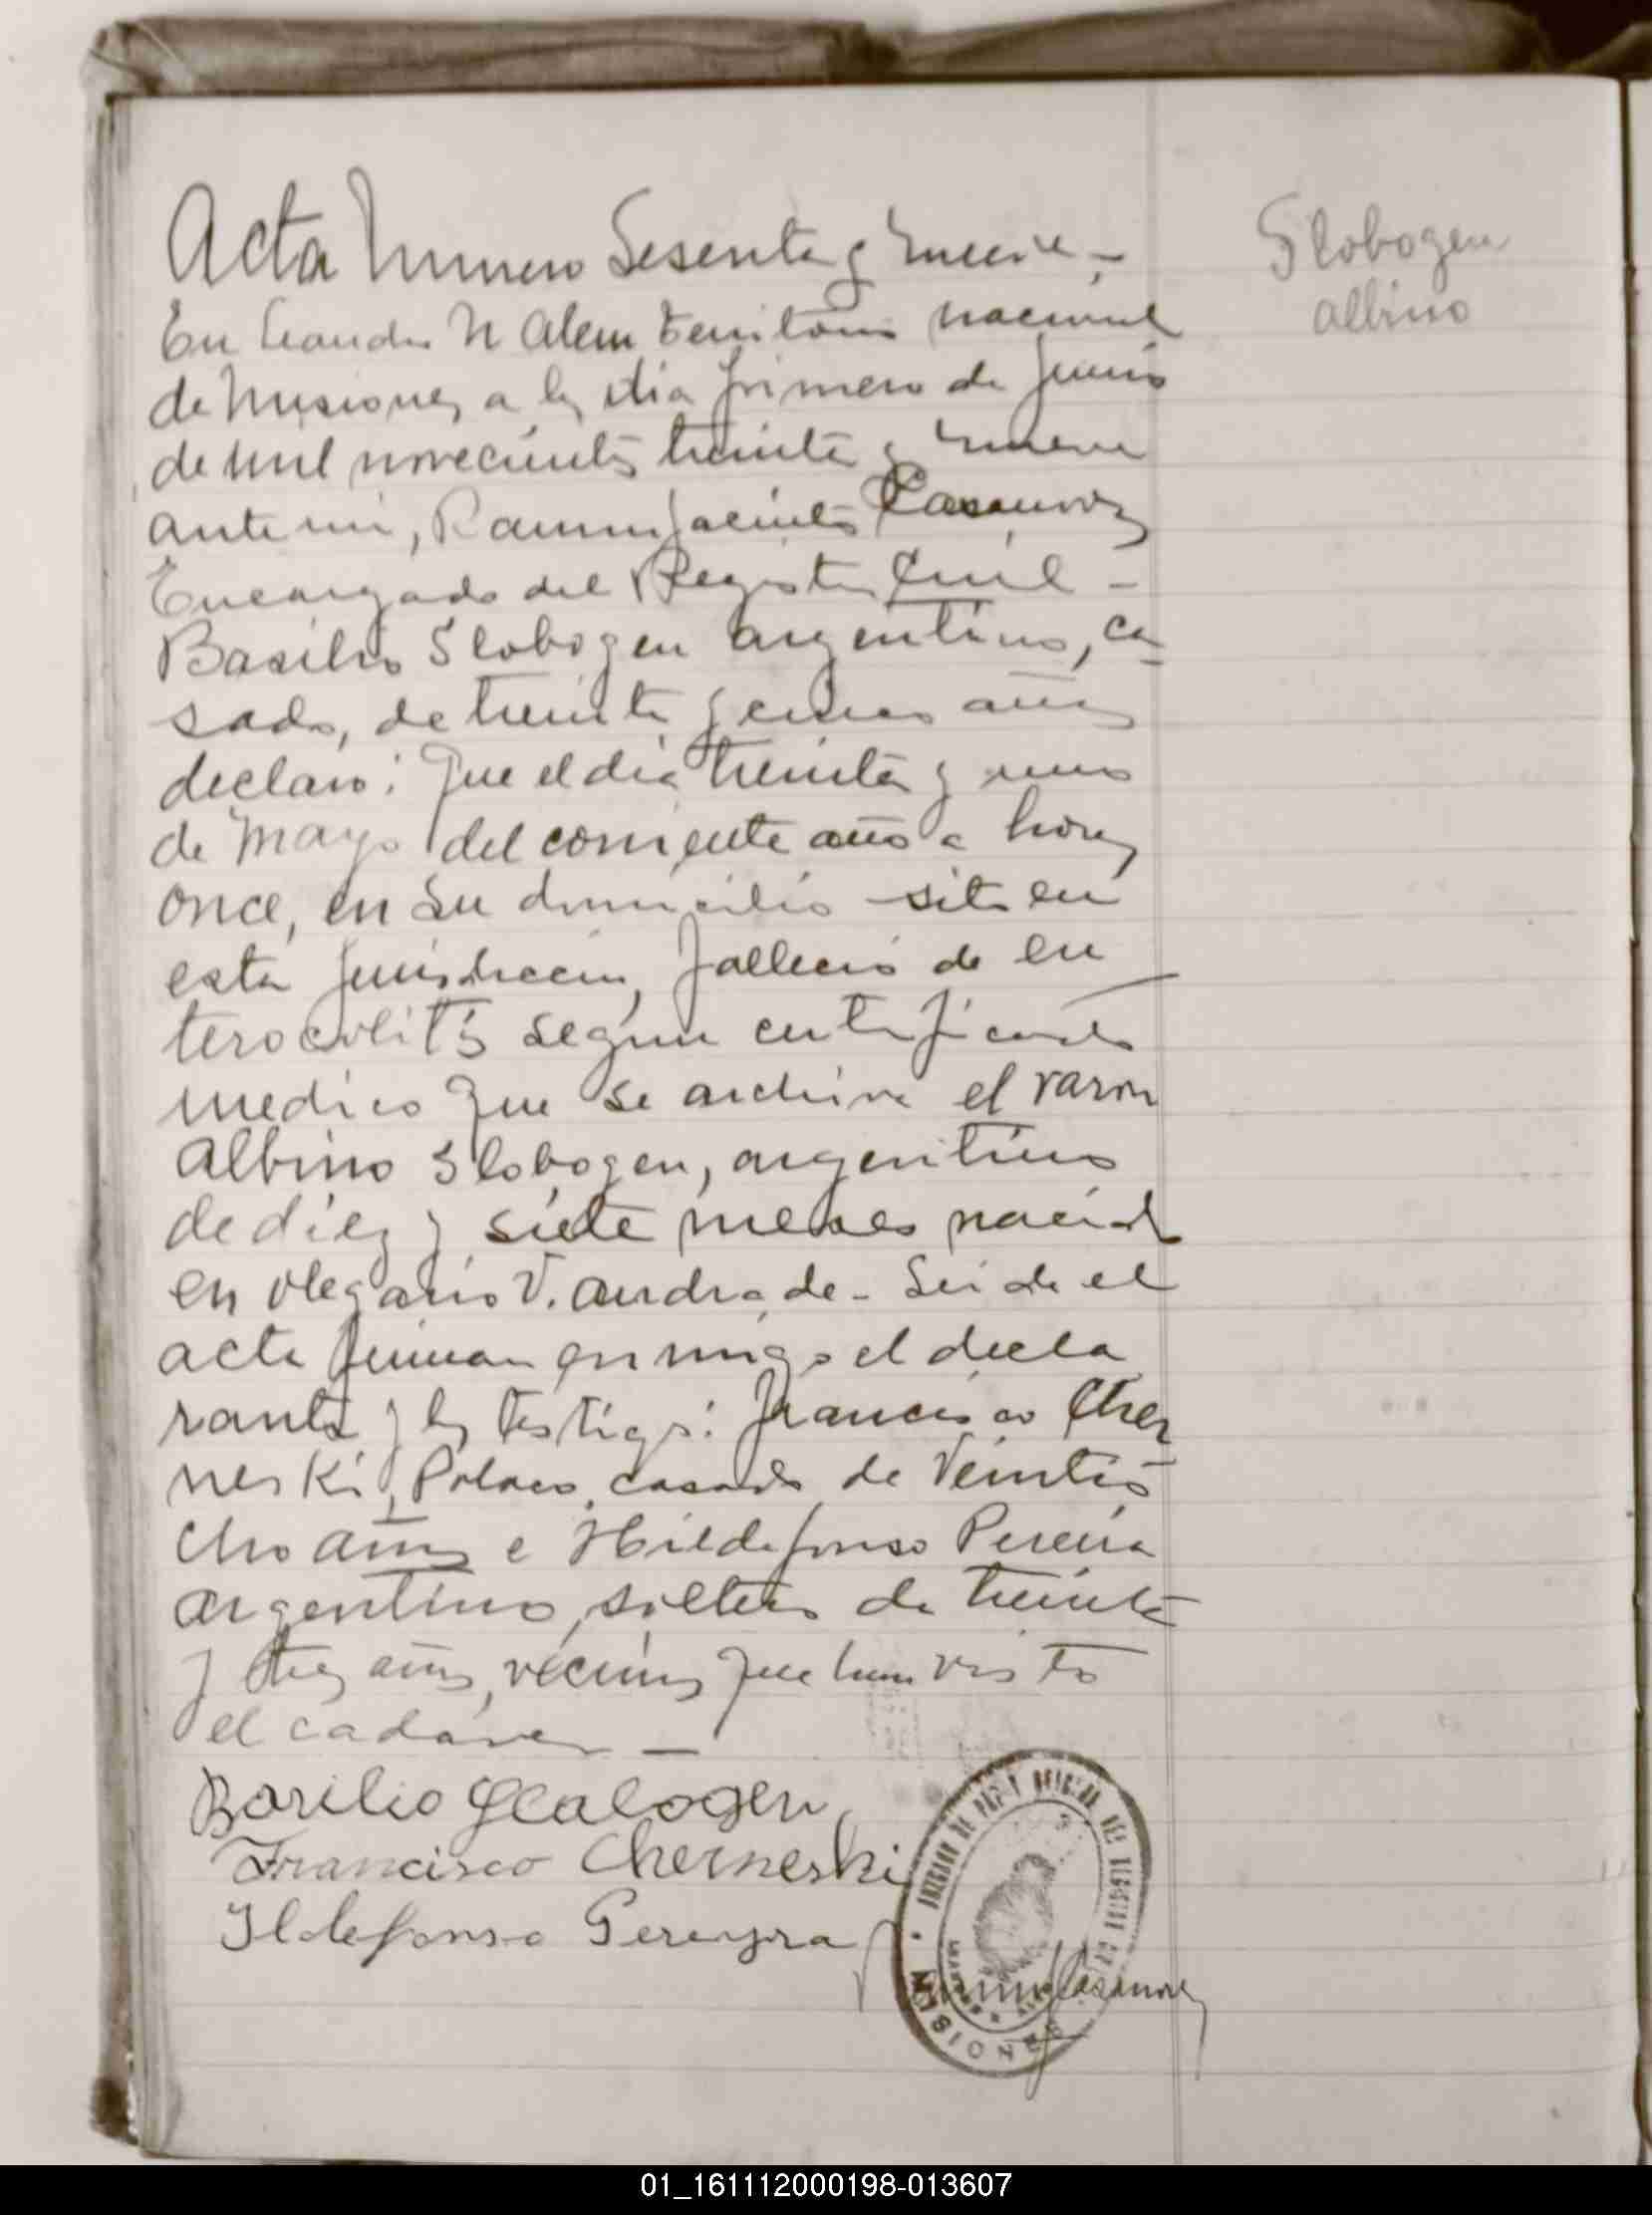 Acta Numero Sesenta y nueve -
Slobogen
Albino
En Leandro N Alem Territorio nacional
de Misiones a los dia primero de Junio
de mil novecientos treinta y nueve
ante mi, Ramon Jacinto Casanova
Encargado del Registro Civil -
Basilio Slobogen argentino, ca
sado, de treinta y años
declaró: Que el dia treinta y uno
de Mayo del corriente año a horas
once, en su domicilio sito en
esta jurisdicción, falleció de en
terocolitis según certificado
medico que se archiva el varon
Albino Slobogen, argentino
de diez y siete meses nacido
en Olegario V. Andrade - Leida el
acta firman conmigo el decla
rante y los testigos: Francisco Cher
neski, Polaco, casado de veintio
cho años e Hildefonso Pereira
argentino, soltero de treinta
y tres años, vecinos que han visto
el cadaver -
Basilio Slabogen
Francisco Cherneski
Ildefonso Pereyra
JUZGADO DE PAZ Y OFICINA DEL REGISTRO CIVIL
MISIONES
Casanova
01_161112000198-013607